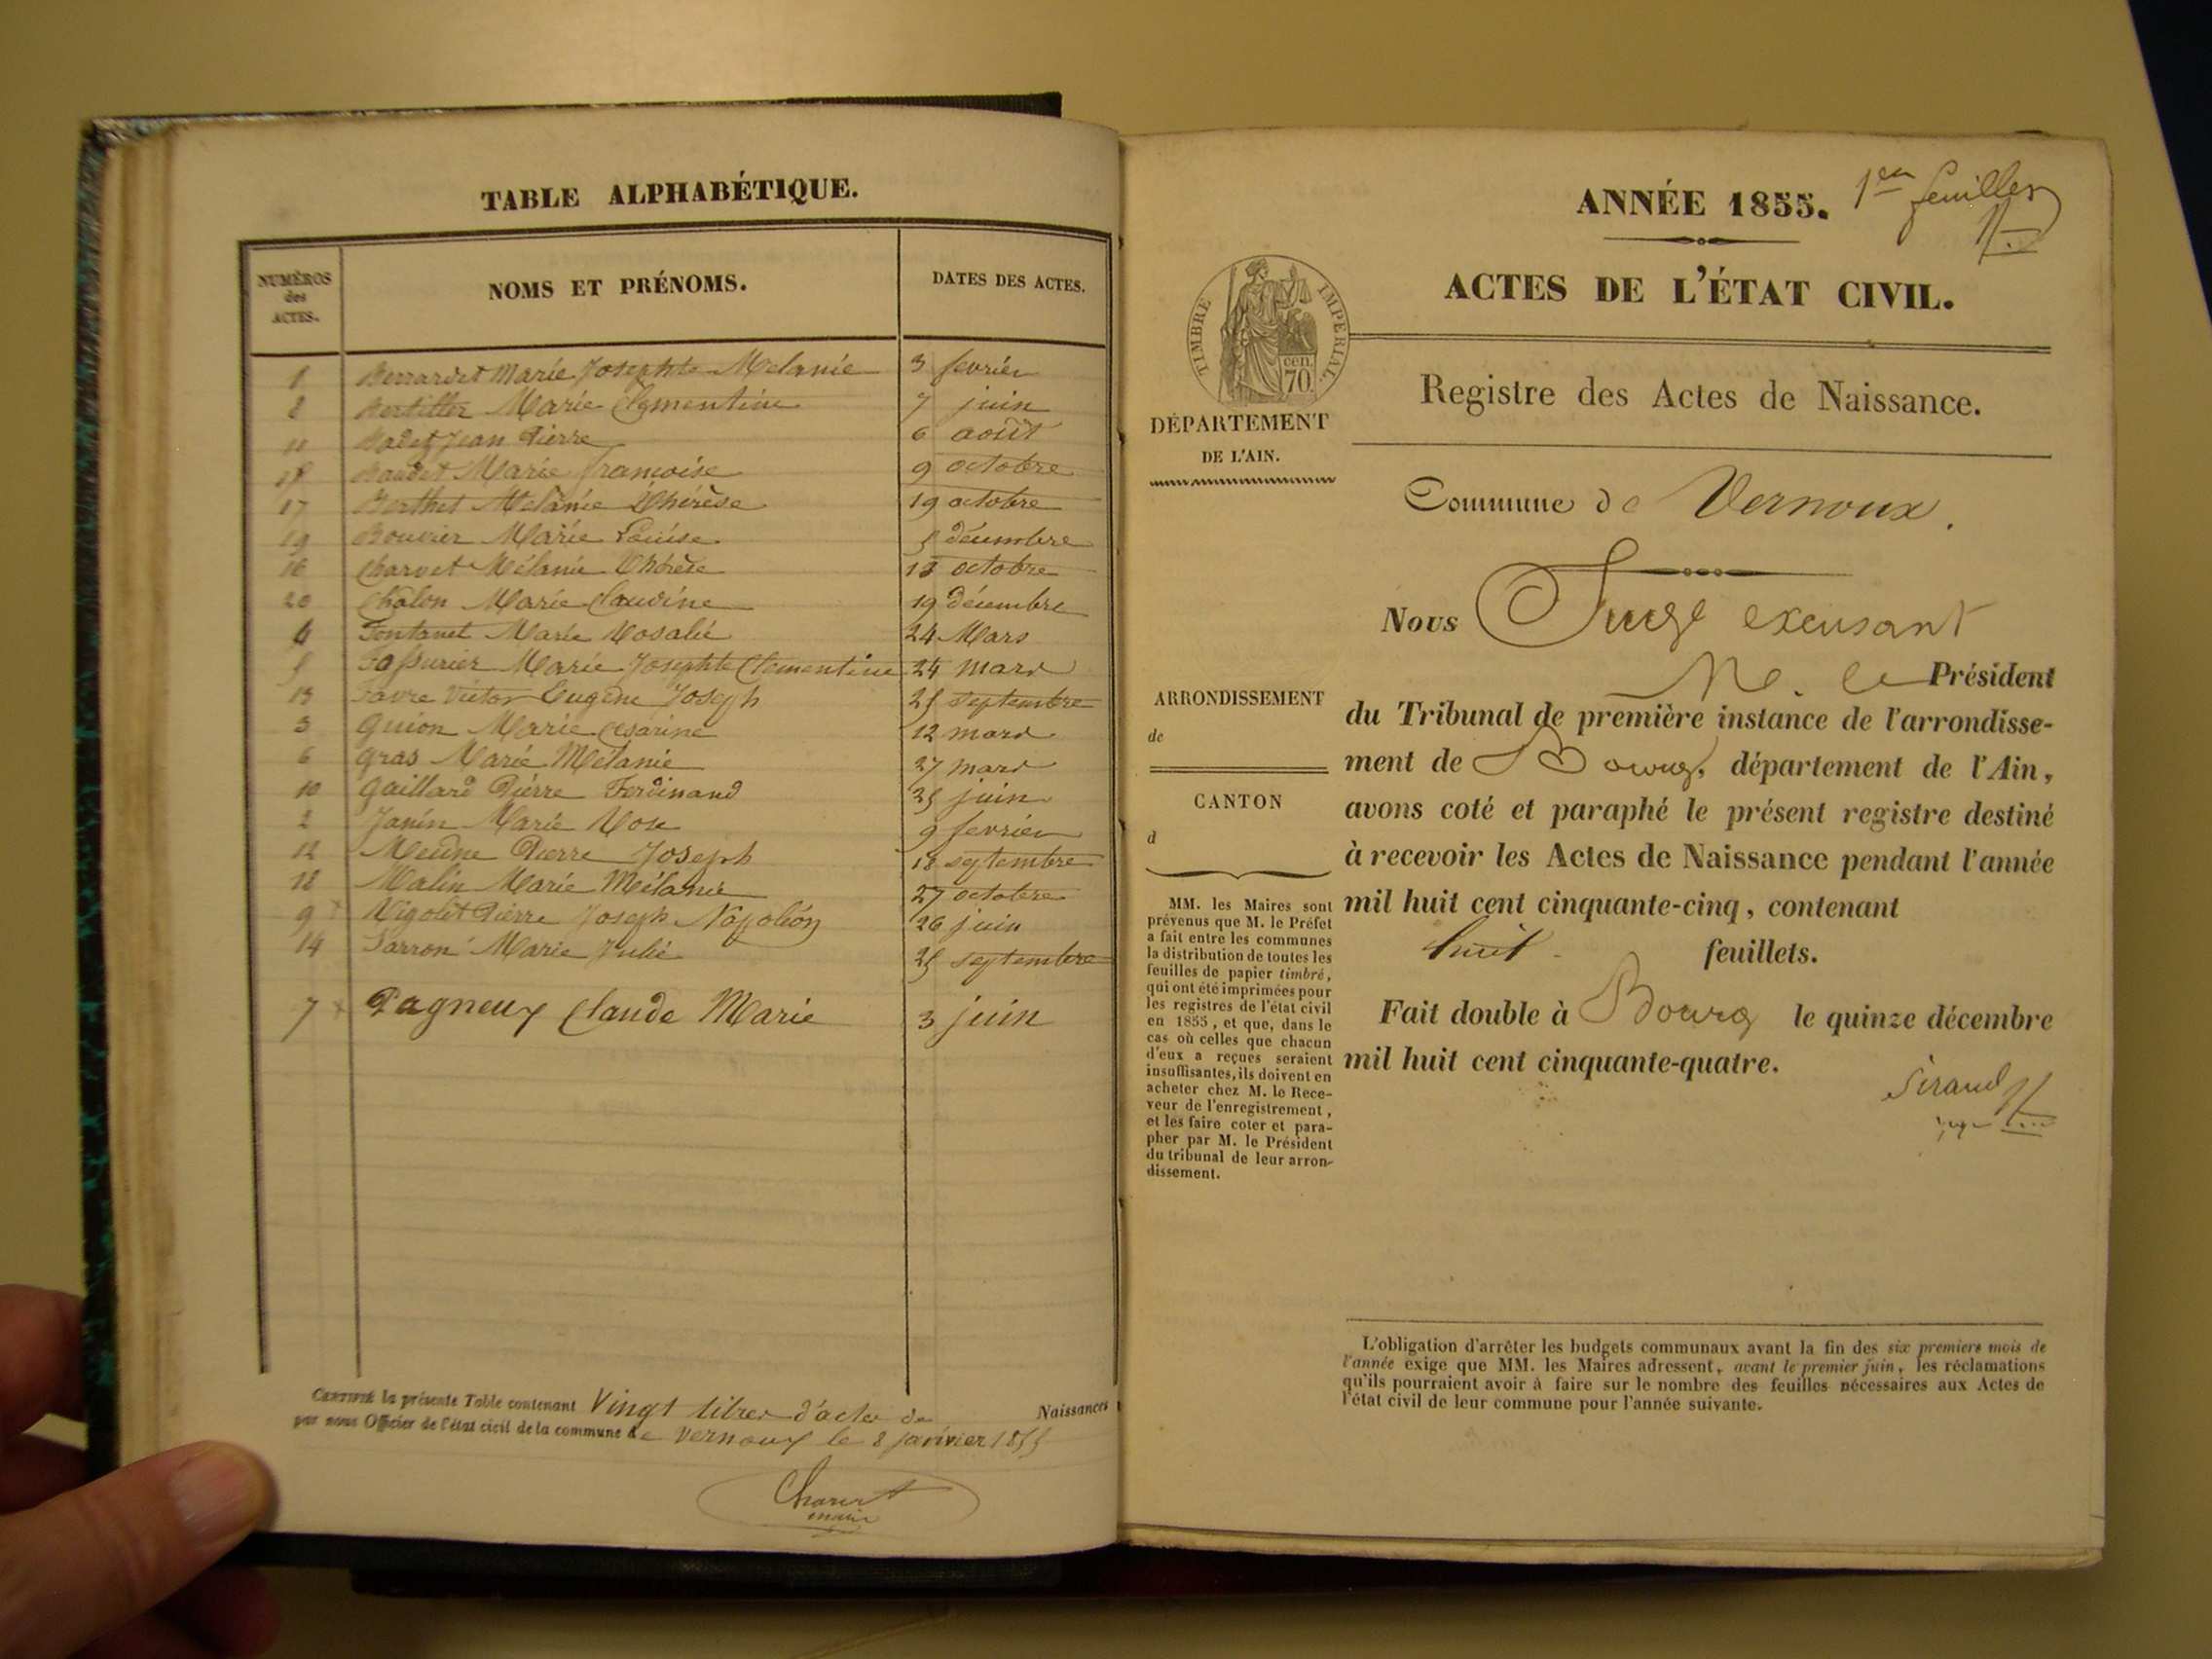 TABLE ALPHABÉTIQUE.
NUMÉROS
des
ACTES.
NOMS ET PRÉNOMS.
DATES DES ACTES.
1 Marie Josephte Melanie 3 fevrier
8 Marie Clementine 7 juin
11 Jean Pierre 6 août
Marie francoise 9 octobre
17 Berthet Melanie Thérèse 19 octobre
19 Bouvier Marie Louise 5 décembre
16 Charvet Mélanie Thérèse 18 octobre
20 Chalon Marie Claudine 19 décembre
4 Fontanet Marie Rosalie 24 Mars
5 Marie Josephte Clementine 24 mars
13 Favre Victor Eugène Joseph 25 septembre
3 Guion Marie Cesarine 12 mars
6 Gras Marie Mélanie 27 mars
10 Gaillard Pierre Ferdinand 25 juin
2 Janin Marie Rose 9 fevrier
12 Pierre Joseph 18 septembre
18 Malin Marie Mélanie 27 octobre
9 Pierre Joseph Napoléon 26 juin
14 Marie Julie 25 septembre
7 Pagneux Claude Marie 3 juin
CERTIFIÉ la présente Table contenant Vingt titres d'actes de Naissances
par nous Officier de l'état civil de la commune de Vernoux le 8 janvier 1855
Charvet
maire
ANNÉE 1855.
1er feuillet
ACTES DE L'ÉTAT CIVIL.
TIMBRE IMPERIAL.
cen.
70.
Registre des Actes de Naissance.
DÉPARTEMENT
DE L'AIN.
Commune de Vernoux.
Nous Juge excusant
M. le Président
ARRONDISSEMENT
de
CANTON
d
du Tribunal de première instance de l'arrondisse-
ment de Bourg, département de l'Ain,
avons coté et paraphé le présent registre destiné
à recevoir les Actes de Naissance pendant l'année
mil huit cent cinquante-cinq, contenant
huit feuillets.
Fait double à Bourg le quinze décembre
mil huit cent cinquante-quatre.
Siraud
juge
MM. les Maires sont
prévenus que M. le Préfet
a fait entre les communes
la distribution de toutes les
feuilles de papier timbré,
qui ont été imprimées pour
les registres de l'état civil
en 1855, et que, dans le
cas où celles que chacun
d'eux a reçues seraient
insuffisantes, ils doivent en
acheter chez M. le Rece-
veur de l'enregistrement,
et les faire coter et para-
pher par M. le Président
du tribunal de leur arron-
dissement.
L'obligation d'arrêter les budgets communaux avant la fin des six premiers mois de
l'année exige que MM. les Maires adressent, avant le premier juin, les réclamations
qu'ils pourraient avoir à faire sur le nombre des feuilles nécessaires aux Actes de
l'état civil de leur commune pour l'année suivante.